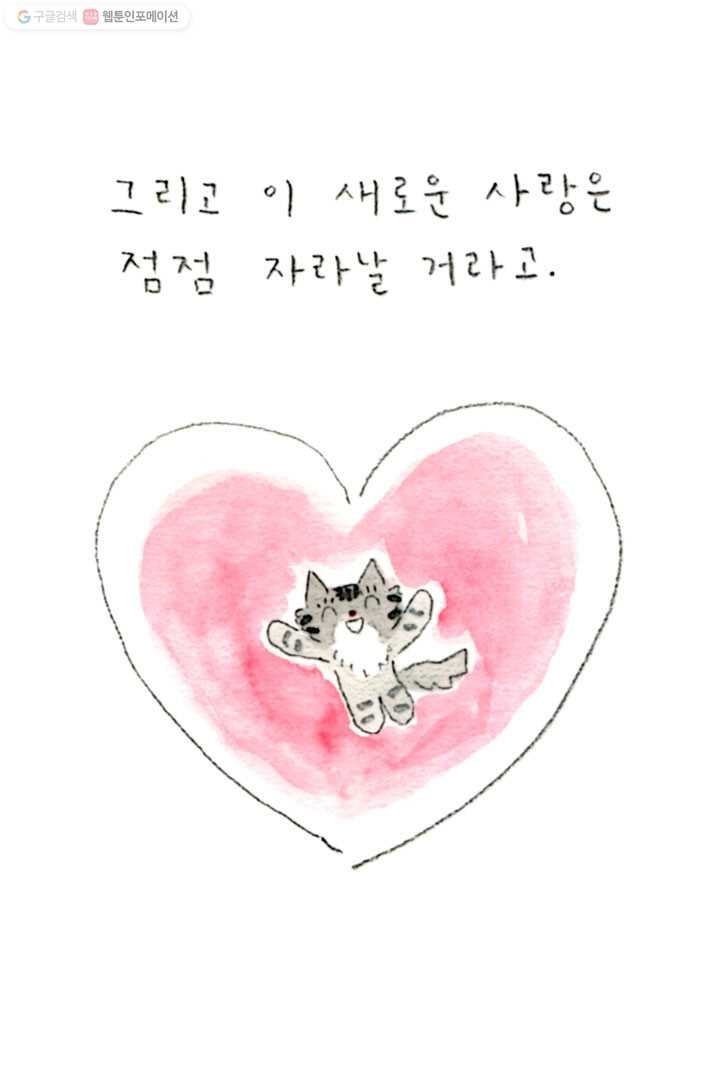 구글검색 웹툰인포메이션
그리고 이 새로운 사랑은
점점 자라날 거라고.